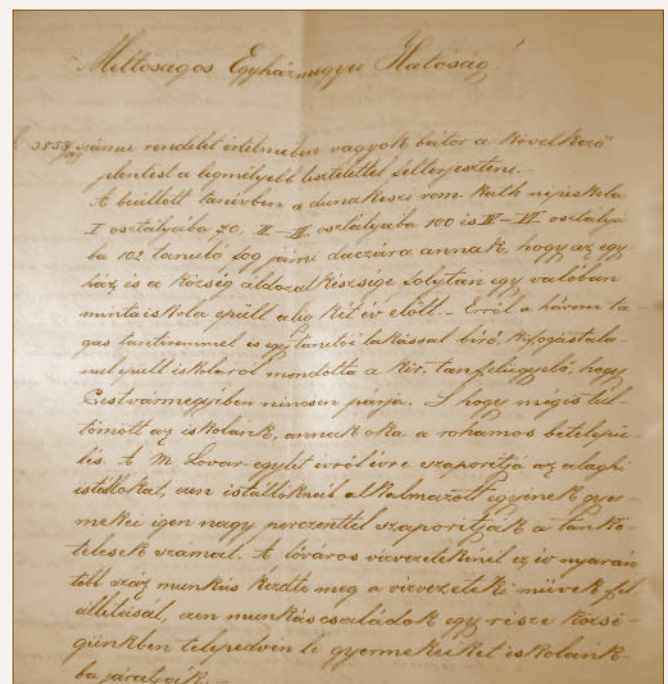 Méltóságos Egyházmegyei Hatóság!
számú rendelet értelmében vagyok bátor a következő
jelentést a legmélyebb tisztelettel felterjeszteni.-
A beállott tanévben a dunakeszi rom. kath népiskola
I osztályába 70, II-III. osztályába 100 és IV-VI osztályá
ba 102 tanuló fog járni daczára annak, hogy az egy
ház és a község áldozatkészsége folytán egy valóban
mintaiskola épült alig két év előtt.- Erről a három tá-
gas tanteremmel és egy tanítói lakással bíró, kifogástala-
nul épült iskoláról mondotta a kir. tanfelügyelő, hogy
Pestvármegyében nincsen párja. S hogy mégis túl-
tömött az iskolánk, annak oka a rohamos betelepü-
lés. A M. Lovar egylet évről évre szaporítja az alaghi
istállókat, ezen istállóknál alkalmazott egyének gyer-
mekei igen nagy perczenttel szaporítják a tankö-
telesek számát. A főváros vízvezetékénél ez év nyarán
több száz munkás kezdte meg a vízvezetéki művek fel
állítását, ezen munkáscsaládok egy része közsé-
günkben telepedvén le gyermekeiket iskolánk-
ba járatják.-